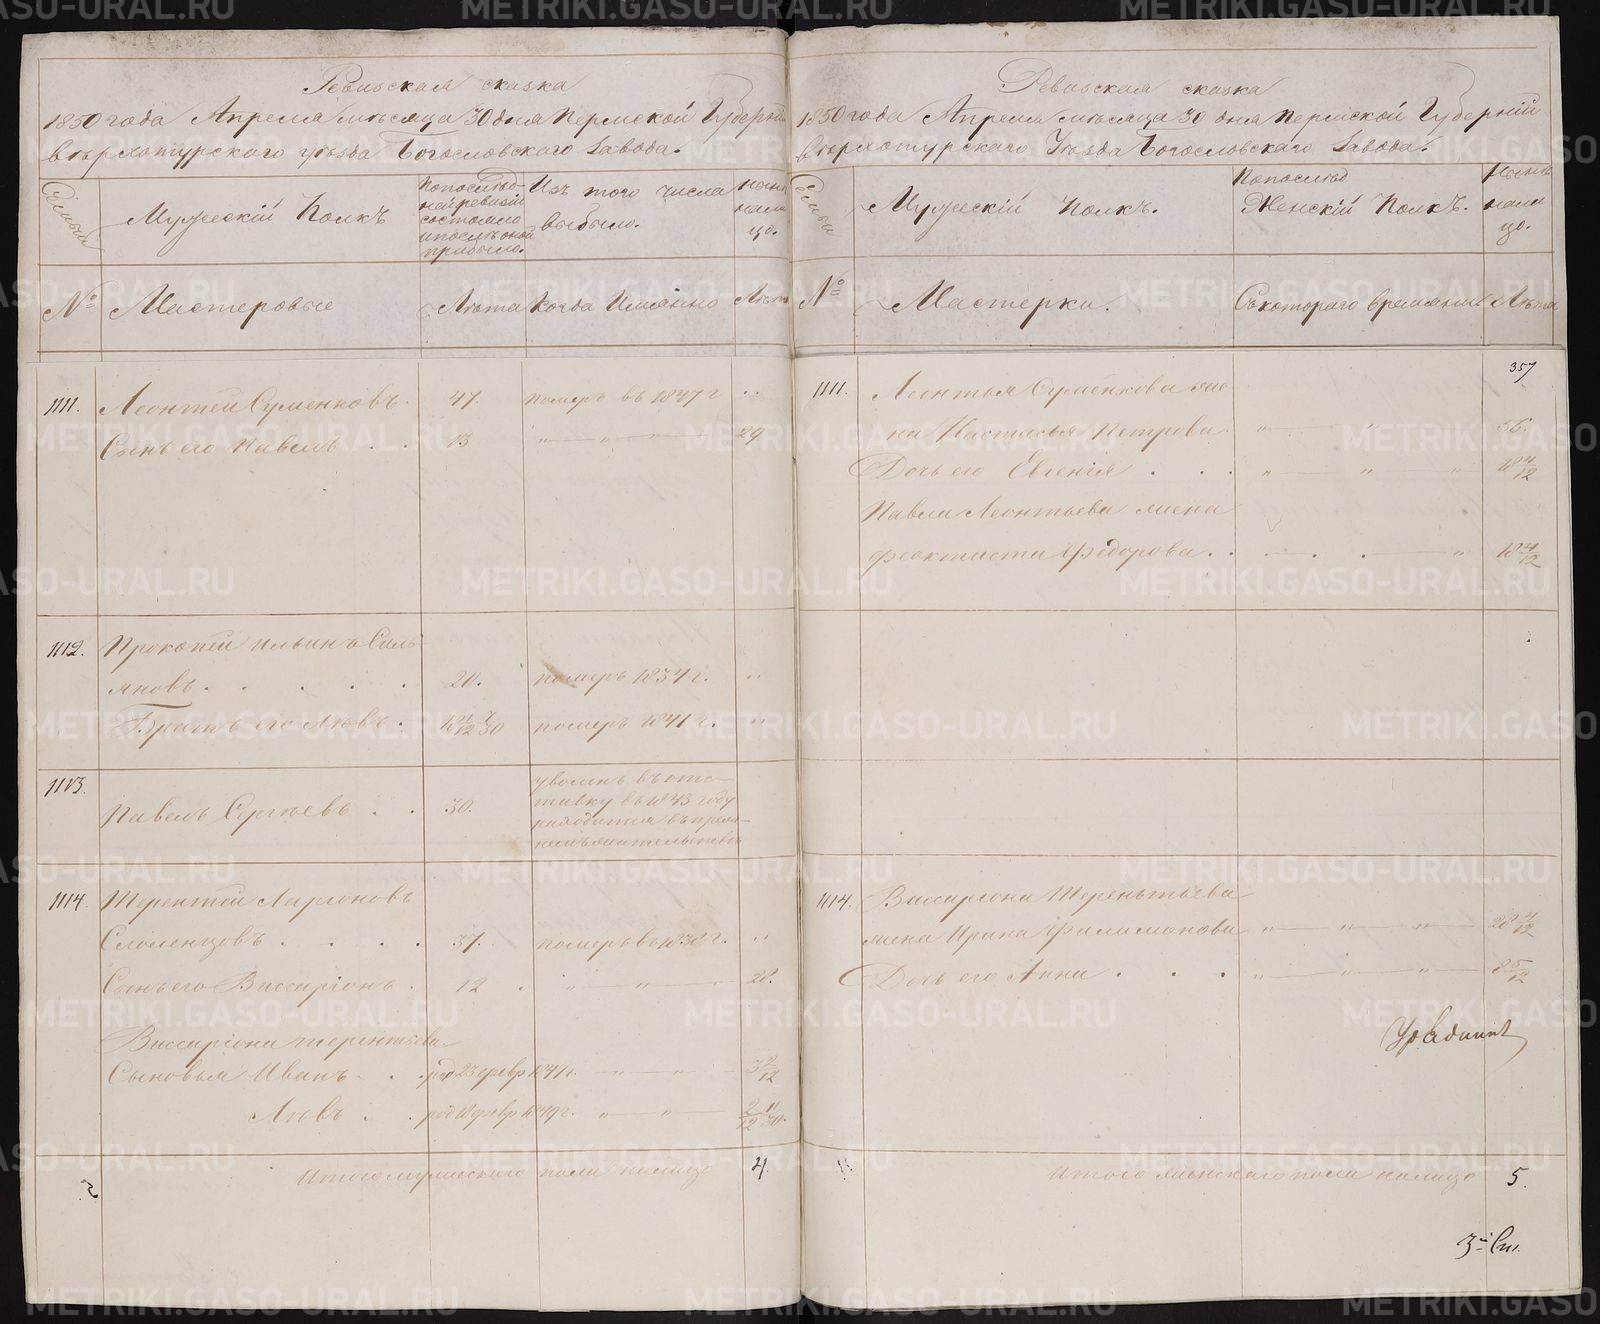 Ревизская сказка
1850 года Апреля месяца 30 дня Пермской Губерніи
Верхотурскаго уезда Богословскаго Завода.
Семьи
Мужескій Полкъ
По последней ревизіи состояло и после оной прибыло.
Изъ того числа выбыло.
Ныне на лицо.
№
Мастеровые
Лета
Когда Имянно
Лета
1111.
Леонтей Суменковъ
47.
померъ въ 1847 г
Сынъ его Павелъ . .
13
29
1112.
Прокопей Ильинъ Силь
яновъ . . . . .
20.
померъ 1834 г.
Братъ его Левъ .
померъ 1841 г.
1113.
Павелъ Сергеевъ . .
30.
уволенъ въ отс-
тавку въ 1843 году
находится въ
1114.
Терентей Ларионовъ
. . . .
37.
померъ во 1838 г.
Сынъ его Виссаріонъ .
12
28.
Виссаріона Терентьева
Сыновья Иванъ . .
род 23 февр 1847 г.
3 2/12
Левъ . .
2/12 11/30.
Итого мужескаго пола налицо
4
Ревизская сказка
1850 года Апреля месяца 30 дня Пермской Губерніи
Верхотурскаго Уезда Богословскаго Завода.
Семьи
Мужескій полкъ.
По послед
Женскій Полкъ.
Ныне на лицо.
№
Мастерки.
Съ котораго времяни
Лета
357
1111.
Леонтья Суменкова же
на Настасья Петрова
56.
Дочь его Евгенія . . .
18 4/12
Павла Леонтьева жена
Феоктиста Федорова . .
18 4/12
1114.
Виссаріона Терентьева
жена Ирина Филимонова
28 4/12
Дочь его Анна . . .
8 5/12
Итого женскаго пола налицо
5.
METRIKI.GASO-URAL.RU